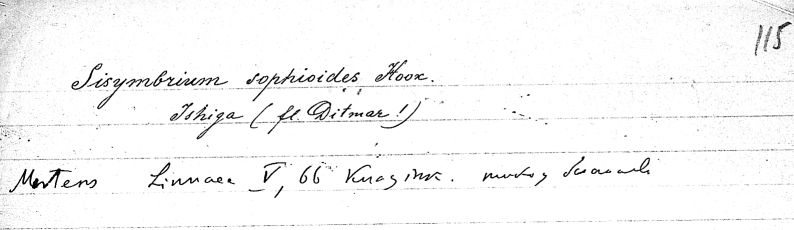 115
Sisymbrium sophioides Hook.
Ishiga (fl. Ditmar!)
Mertens Linnaea V, 66